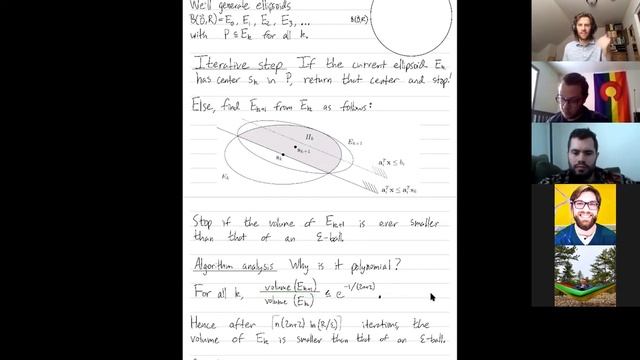 We'll generate ellipsoids
B(0,R) = E₀, E₁, E₂, E₃, ...
with P ⊆ Eₖ for all k.
B(0,R)
Iterative step If the current ellipsoid Eₖ
has center sₖ in P, return that center and stop!
Else, find Eₖ₊₁ from Eₖ as follows:
Hₖ
Eₖ₊₁
sₖ₊₁
sₖ
Eₖ
aᵢᵀx ≤ bᵢ
aᵢᵀx ≤ aᵢᵀsₖ
Stop if the volume of Eₖ₊₁ is ever smaller
than that of an ε-ball.
Algorithm analysis Why is it polynomial?
For all k, volume(Eₖ₊₁) / volume(Eₖ) ≤ e^(-1/(2n+2)).
Hence after ⌈n(2n+2) ln(R/ε)⌉ iterations, the
volume of Eₖ is smaller than that of an ε-ball.